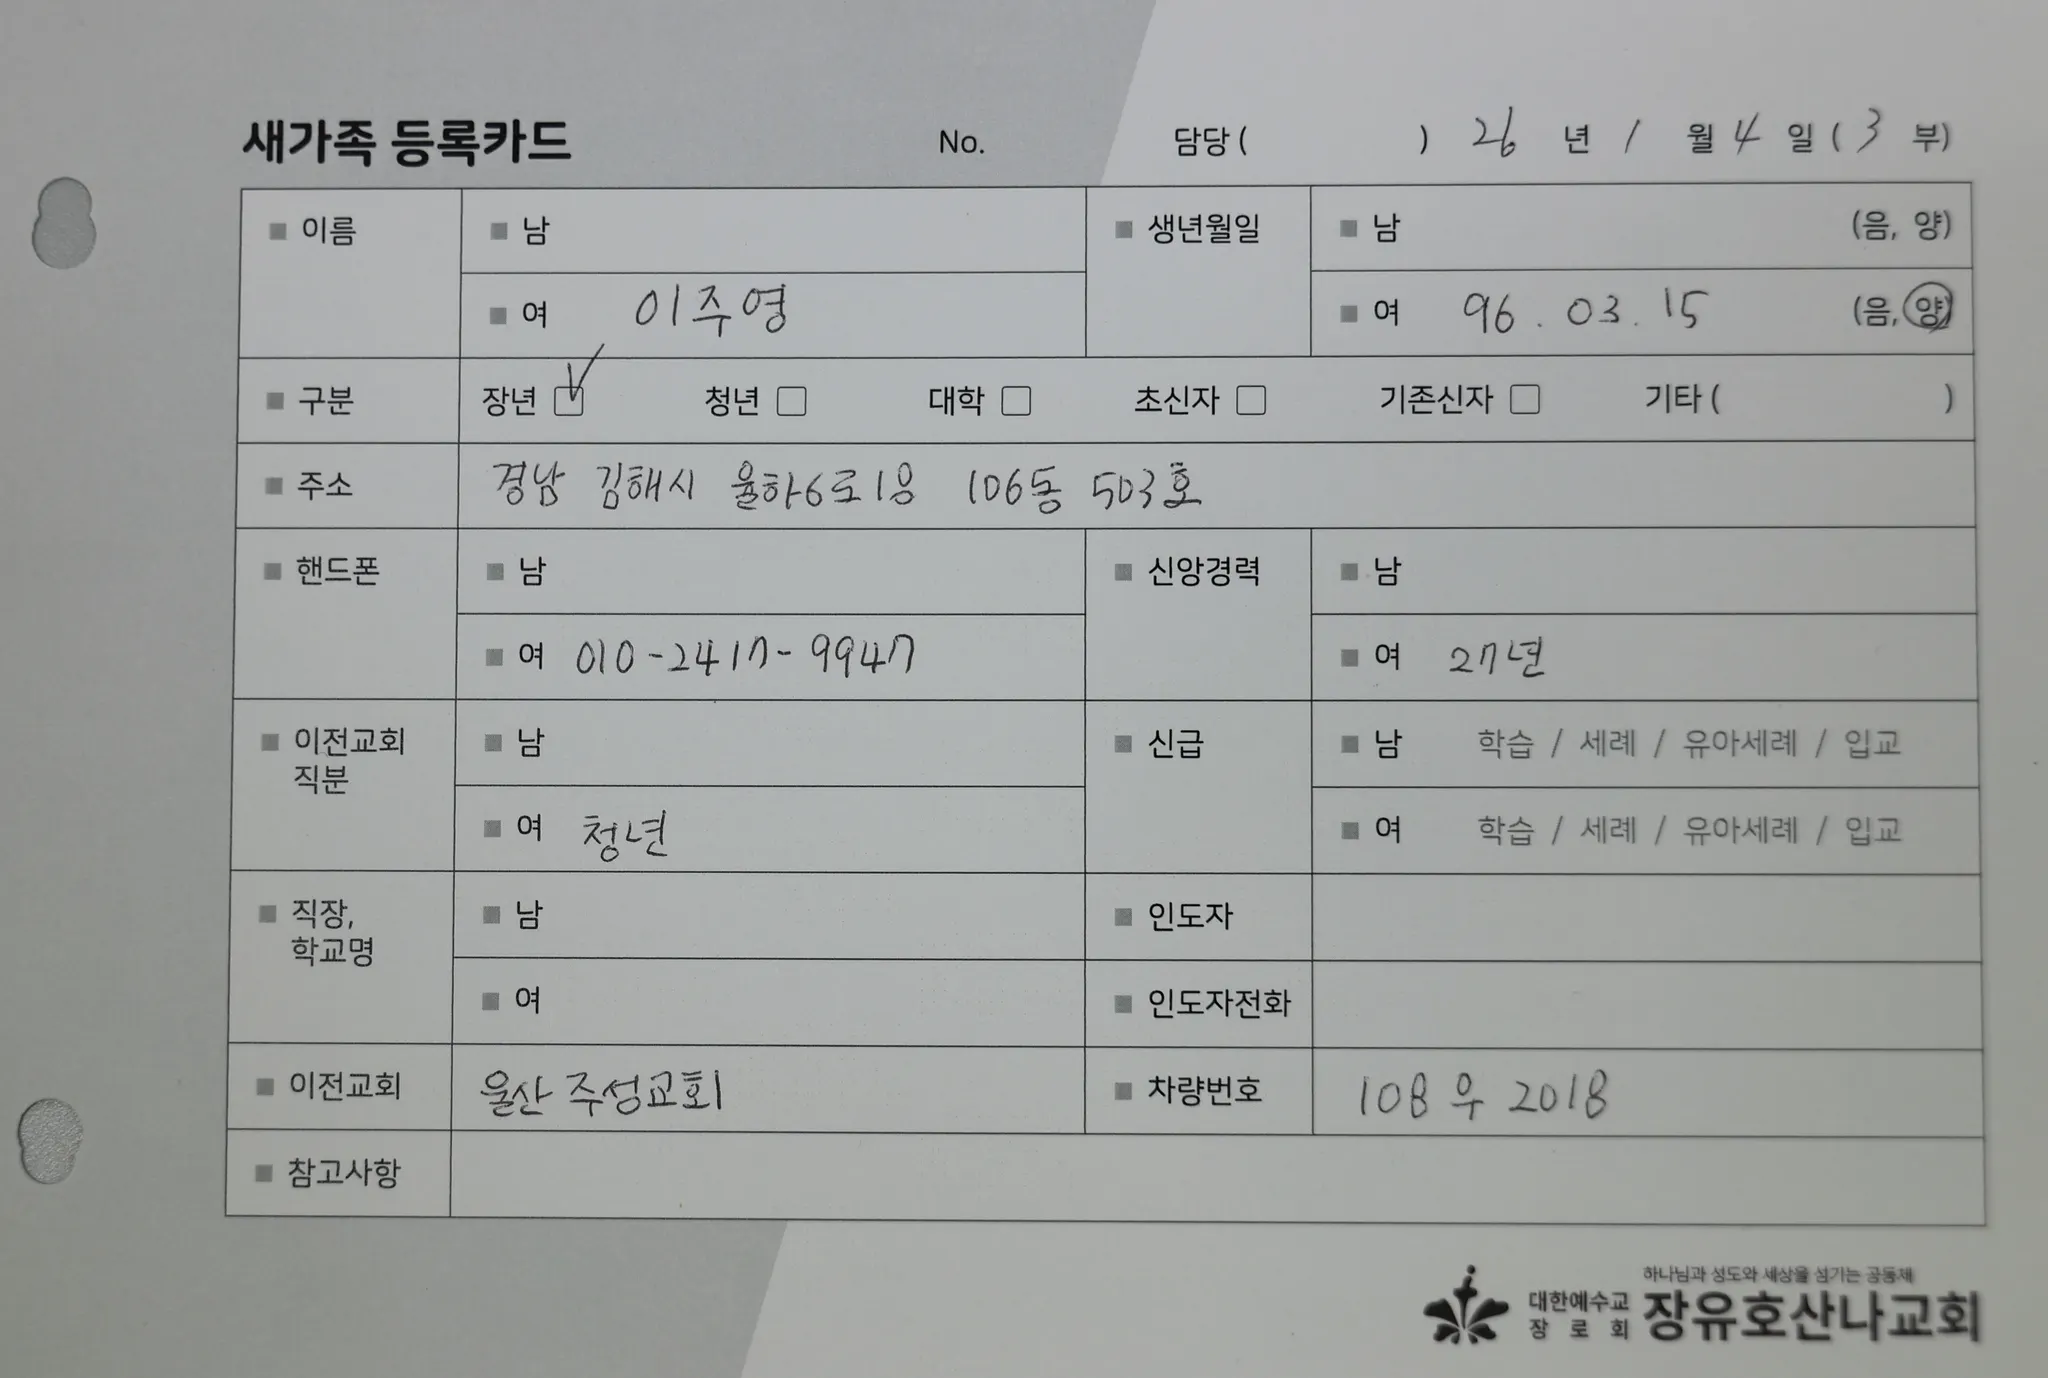 새가족 등록카드 No. 담당 ( ) 26 년 1 월 4 일 ( 3 부)
이름 남 생년월일 남 (음, 양)
여 이주영 여 96. 03. 15 (음, 양)
구분 장년 청년 대학 초신자 기존신자 기타 ( )
주소 경남 김해시 율하6로 106동 503호
핸드폰 남 신앙경력 남
여 010-2417-9947 여 27년
이전교회 직분 남 신급 남 학습 / 세례 / 유아세례 / 입교
여 청년 여 학습 / 세례 / 유아세례 / 입교
직장, 학교명 남 인도자
여 인도자전화
이전교회 울산 주성교회 차량번호 108 우 2018
참고사항
하나님과 성도와 세상을 섬기는 공동체
대한예수교 장로회 장유호산나교회